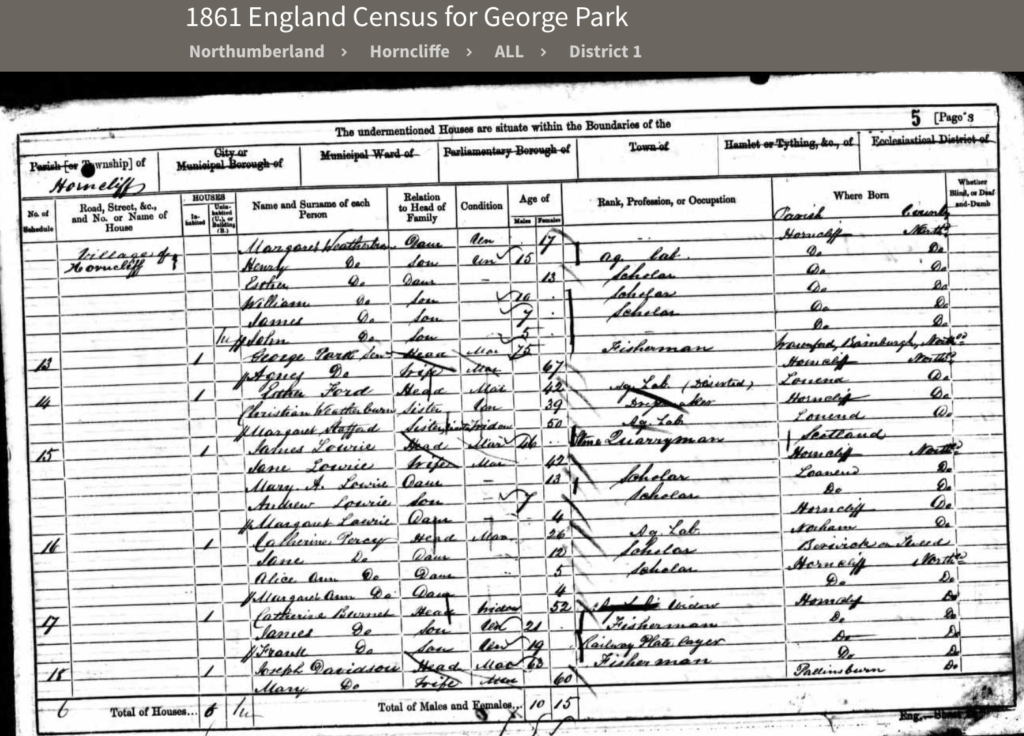 1861 England Census for George Park
Northumberland › Horncliffe › ALL › District 1
The undermentioned Houses are situate within the Boundaries of the 5 [Page 3
Parish [or Township] of City or Municipal Borough of Municipal Ward of Parliamentary Borough of Town of Hamlet or Tything, &c., of Ecclesiastical District of
Horncliff
No. of Schedule Road, Street, &c., and No. or Name of House HOUSES Inhabited Uninhabited (U.), or Building (B.) Name and Surname of each Person Relation to Head of Family Condition Age of Males Females Rank, Profession, or Occupation Where Born Whether Blind, or Deaf-and-Dumb
Parish County
Village of Horncliff Margaret Daur Un 17 Horncliff North
Henry Do Son Un 15 Ag. Lab. Do Do
Esther Do Daur 13 Scholar Do Do
William Do Son 10 Scholar Do Do
James Do Son 7 Scholar Do Do
John Do Son 5 Do Do
13 1 George Park Sen Head Mar 75 Fisherman Bamburgh,
Agnes Do Wife Mar 67 Horncliff North
14 1 Ford Head Mar 42 Ag. Lab. (Deserted) Do
Christian Weatherburn Sister Un 39 Horncliff Do
Margaret Stafford Widow 50 Ag. Lab. Do
15 1 James Lowrie Head Mar 46 Quarryman Scotland
Jane Lowrie Wife Mar 42 Horncliff North
Mary A. Lowrie Daur 13 Scholar Do
Andrew Lowrie Son 7 Scholar Do Do
Margaret Lowrie Daur 4 Horncliff Do
16 1 Catherine Percy Head Mar 26 Ag. Lab. Norham Do
Jane Do Daur 12 Scholar Berwick on Tweed
Alice Ann Do Daur 5 Scholar Horncliff North
Margaret Ann Do Daur 4 Do Do
17 1 Catherine Burnet Head Widow 52 Widow Horncliff Do
James Do Son Un 21 Fisherman Do Do
Frank Do Son Un 19 Railway Plate Layer Do Do
18 1 Joseph Davidson Head Mar 63 Fisherman Do Do
Mary Do Wife Mar 60 Pallinsburn Do
6 Total of Houses... 6 Total of Males and Females... 10 15
Eng.—